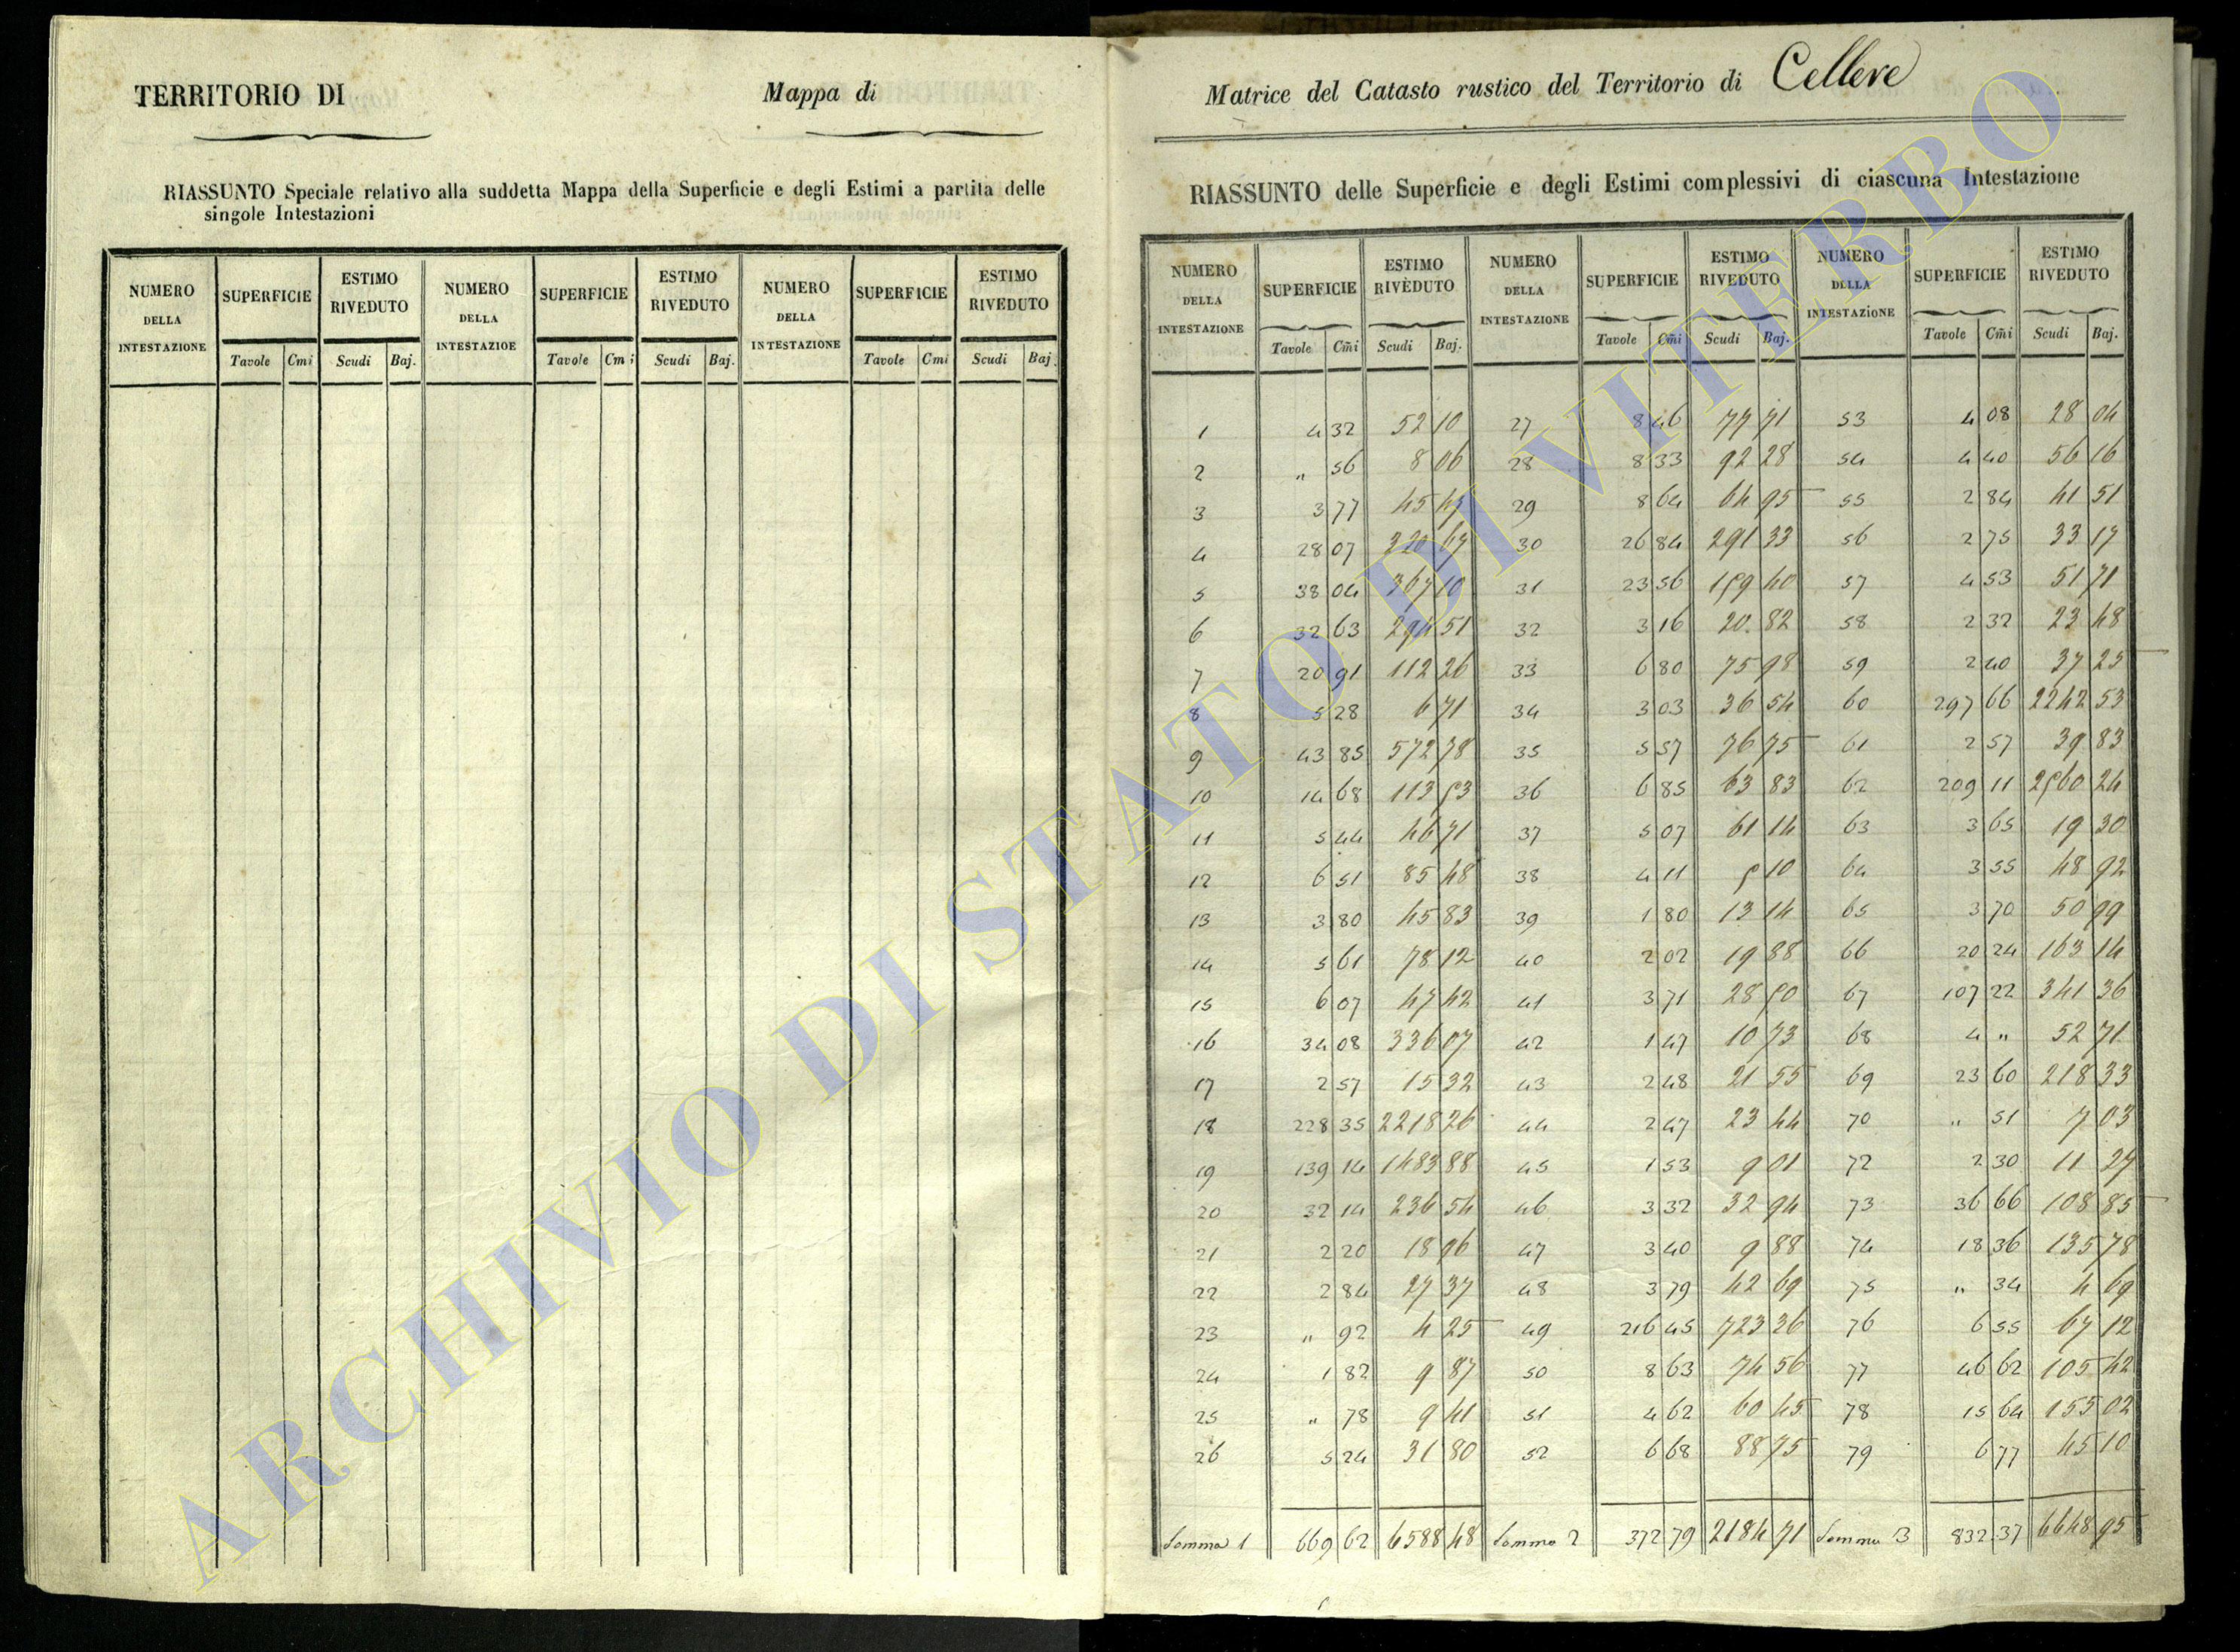 TERRITORIO DI Mappa di
RIASSUNTO Speciale relativo alla suddetta Mappa della Superficie e degli Estimi a partita delle
singole Intestazioni
NUMERO DELLA INTESTAZIONE SUPERFICIE ESTIMO RIVEDUTO NUMERO DELLA INTESTAZIOE SUPERFICIE ESTIMO RIVEDUTO NUMERO DELLA INTESTAZIONE SUPERFICIE ESTIMO RIVEDUTO
Tavole Cmi Scudi Baj. Tavole Cmi Scudi Baj. Tavole Cmi Scudi Baj.
Matrice del Catasto rustico del Territorio di Cellere
RIASSUNTO delle Superficie e degli Estimi complessivi di ciascuna Intestazione
NUMERO DELLA INTESTAZIONE SUPERFICIE ESTIMO RIVEDUTO NUMERO DELLA INTESTAZIONE SUPERFICIE ESTIMO RIVEDUTO NUMERO DELLA INTESTAZIONE SUPERFICIE ESTIMO RIVEDUTO
Tavole Cm̃i Scudi Baj. Tavole Cm̃i Scudi Baj. Tavole Cm̃i Scudi Baj.
1 4 32 52 10 27 8 46 77 71 53 4 08 28 04
2 " 56 8 06 28 8 33 92 28 54 4 40 56 16
3 3 77 45 47 29 8 64 64 95 55 2 84 41 51
4 28 07 320 67 30 26 84 291 33 56 2 75 33 17
5 38 04 367 10 31 23 56 159 40 57 4 53 51 71
6 32 63 294 51 32 3 16 20 82 58 2 32 23 48
7 20 91 112 26 33 6 80 75 98 59 2 40 37 25
8 5 28 6 71 34 3 03 36 54 60 297 66 2242 53
9 43 85 572 78 35 5 57 76 75 61 2 57 39 83
10 14 68 113 53 36 6 85 63 83 62 209 11 2560 24
11 5 44 46 71 37 5 07 61 14 63 3 65 19 30
12 6 51 85 48 38 4 11 5 10 64 3 55 48 92
13 3 80 45 83 39 1 80 13 14 65 3 70 50 99
14 5 61 78 12 40 2 02 19 88 66 20 24 163 14
15 6 07 47 42 41 3 71 28 50 67 107 22 341 36
16 34 08 336 07 42 1 47 10 73 68 4 " 52 71
17 2 57 15 32 43 2 48 21 55 69 23 60 218 33
18 228 35 2218 26 44 2 47 23 44 70 " 51 7 03
19 139 14 1483 88 45 1 53 9 01 72 2 30 11 27
20 32 14 236 54 46 3 32 32 94 73 36 66 108 85
21 2 20 18 96 47 3 40 9 88 74 18 36 135 78
22 2 84 27 37 48 3 79 42 69 75 " 34 4 69
23 " 92 4 25 49 216 45 723 26 76 6 55 67 12
24 1 82 9 87 50 8 63 74 56 77 46 62 105 42
25 " 78 9 41 51 4 62 60 45 78 15 64 155 02
26 5 24 31 80 52 6 68 88 75 79 6 77 45 10
Somma 1 669 62 6588 48 Somma 2 372 79 2184 71 Somma 3 832 37 6648 95
ARCHIVIO DI STATO DI VITERBO